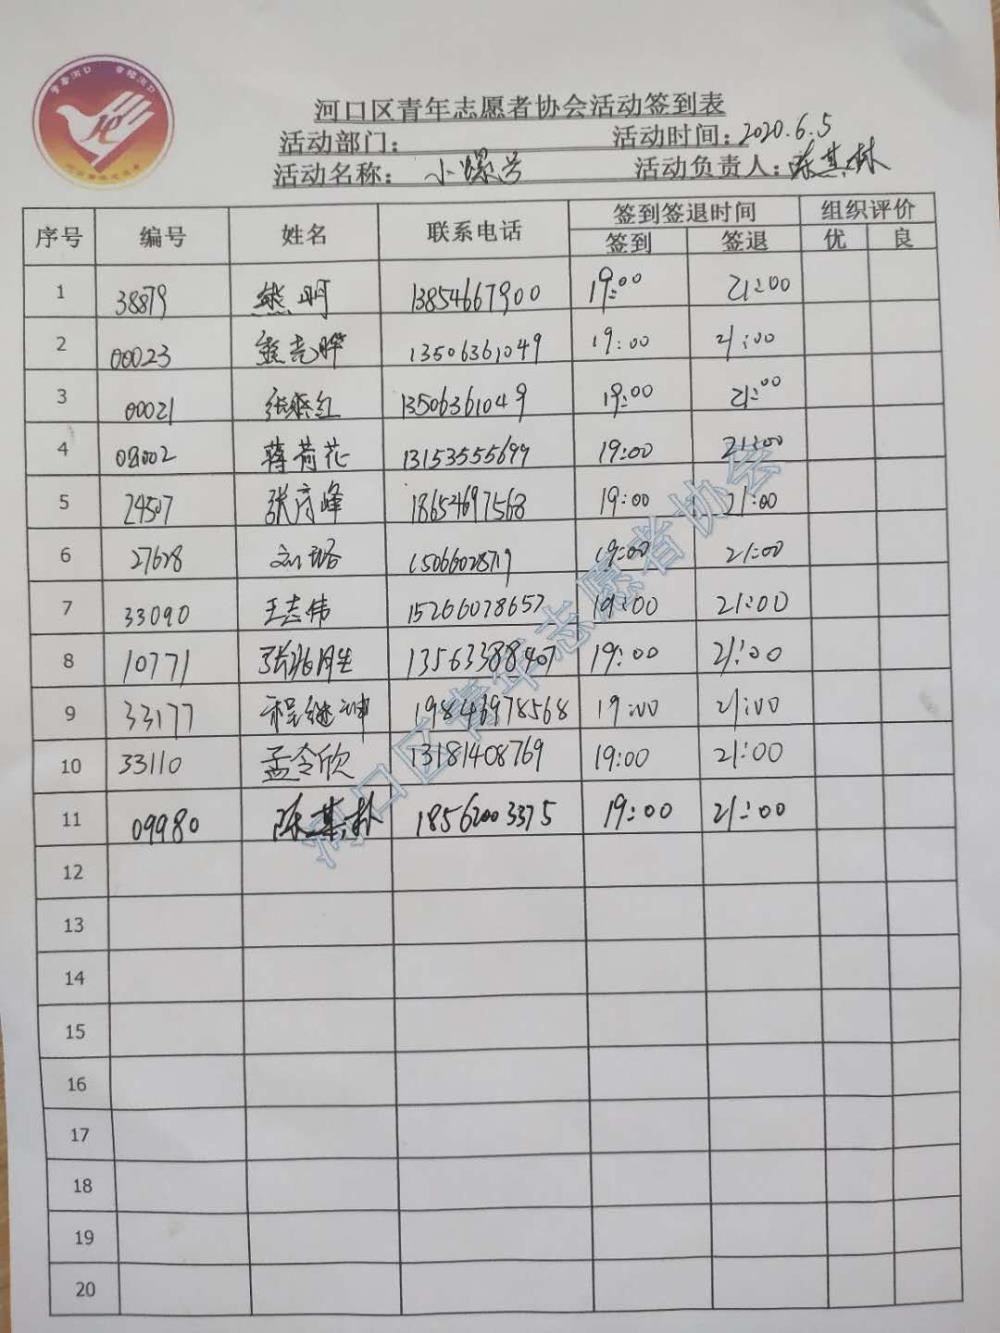 河口区青年志愿者协会活动签到表
活动部门： 活动时间：2020.6.5
活动名称：小螺号 活动负责人：陈其林
序号 编号 姓名 联系电话 签到签退时间 组织评价
签到 签退 优 良
1 38879 熊明 13854667900 19:00 21:00
2 00023 13506361049 19:00 21:00
3 00021 张燕红 13506361049 19:00 21:00
4 蒋荷花 13153555699 19:00 21:00
5 24507 张彦峰 18654697568 19:00 21:00
6 27628 刘璐 19:00 21:00
7 33090 王志伟 15266078657 19:00 21:00
8 10771 13563388407 19:00 21:00
9 33177 程继坤 19846978568 19:00 21:00
10 33110 孟令欣 13181408769 19:00 21:00
11 09980 陈其林 18562003375 19:00 21:00
12
13
14
15
16
17
18
19
20
河口区青年志愿者协会